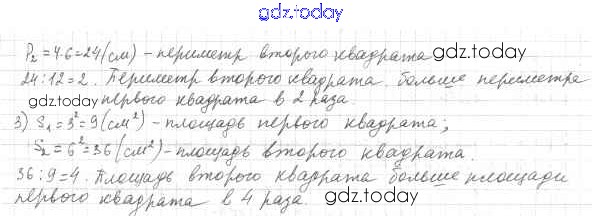 gdz.today
P₂=4·6=24(см) – периметр второго квадрата gdz.today
24:12=2. Периметр второго квадрата больше периметра
gdz.today первого квадрата в 2 раза.
3) S₁=3²=9(см²) – площадь первого квадрата;
S₂=6²=36(см²) – площадь второго квадрата.
36:9=4. Площадь второго квадрата больше площади
первого квадрата в 4 раза. gdz.today